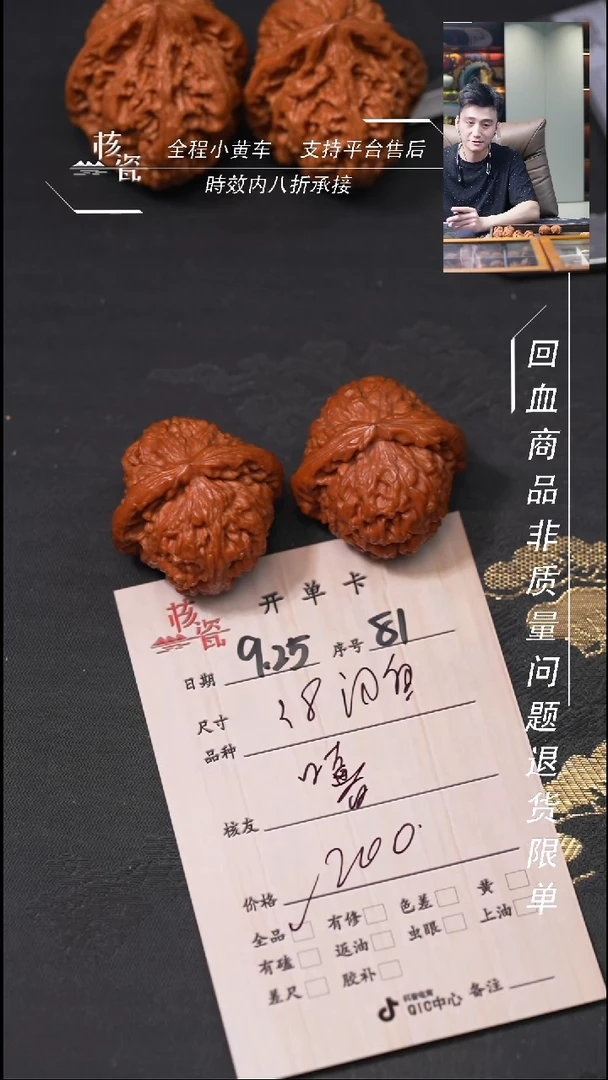 核瓷
全程小黄车 支持平台售后
時效内八折承接
回血商品非质量问题退货限单
核瓷
开单卡
日期 9.25 序号 81
尺寸
品种
核友
价格
全品 有修 色差 黄
有磕 返油 虫眼 上油
差尺 胶补
抖音电商
QIC中心 备注